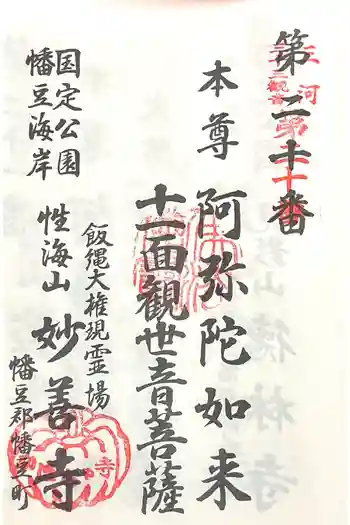 第二十番
三河
三三観音
第二十番
本尊 阿弥陀如来
十一面観世音菩薩
飯縄大権現霊場
国定公園
幡豆海岸
性海山 妙善寺
幡豆郡幡豆町
寺